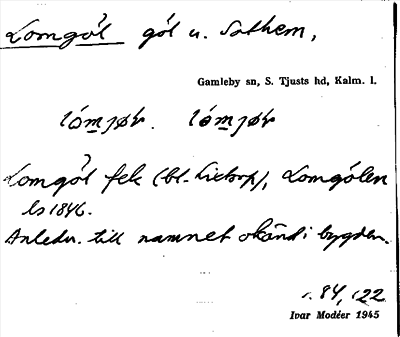 Lomgöl göl u. Sothem,
Gamleby sn, S. Tjusts hd, Kalm. l.
Lomgöl fek (bl. Lietorp), Lomgölen
ls 1846.
Anledn. till namnet okänd i bygden.
s. 84, 122
Ivar Modéer 1945